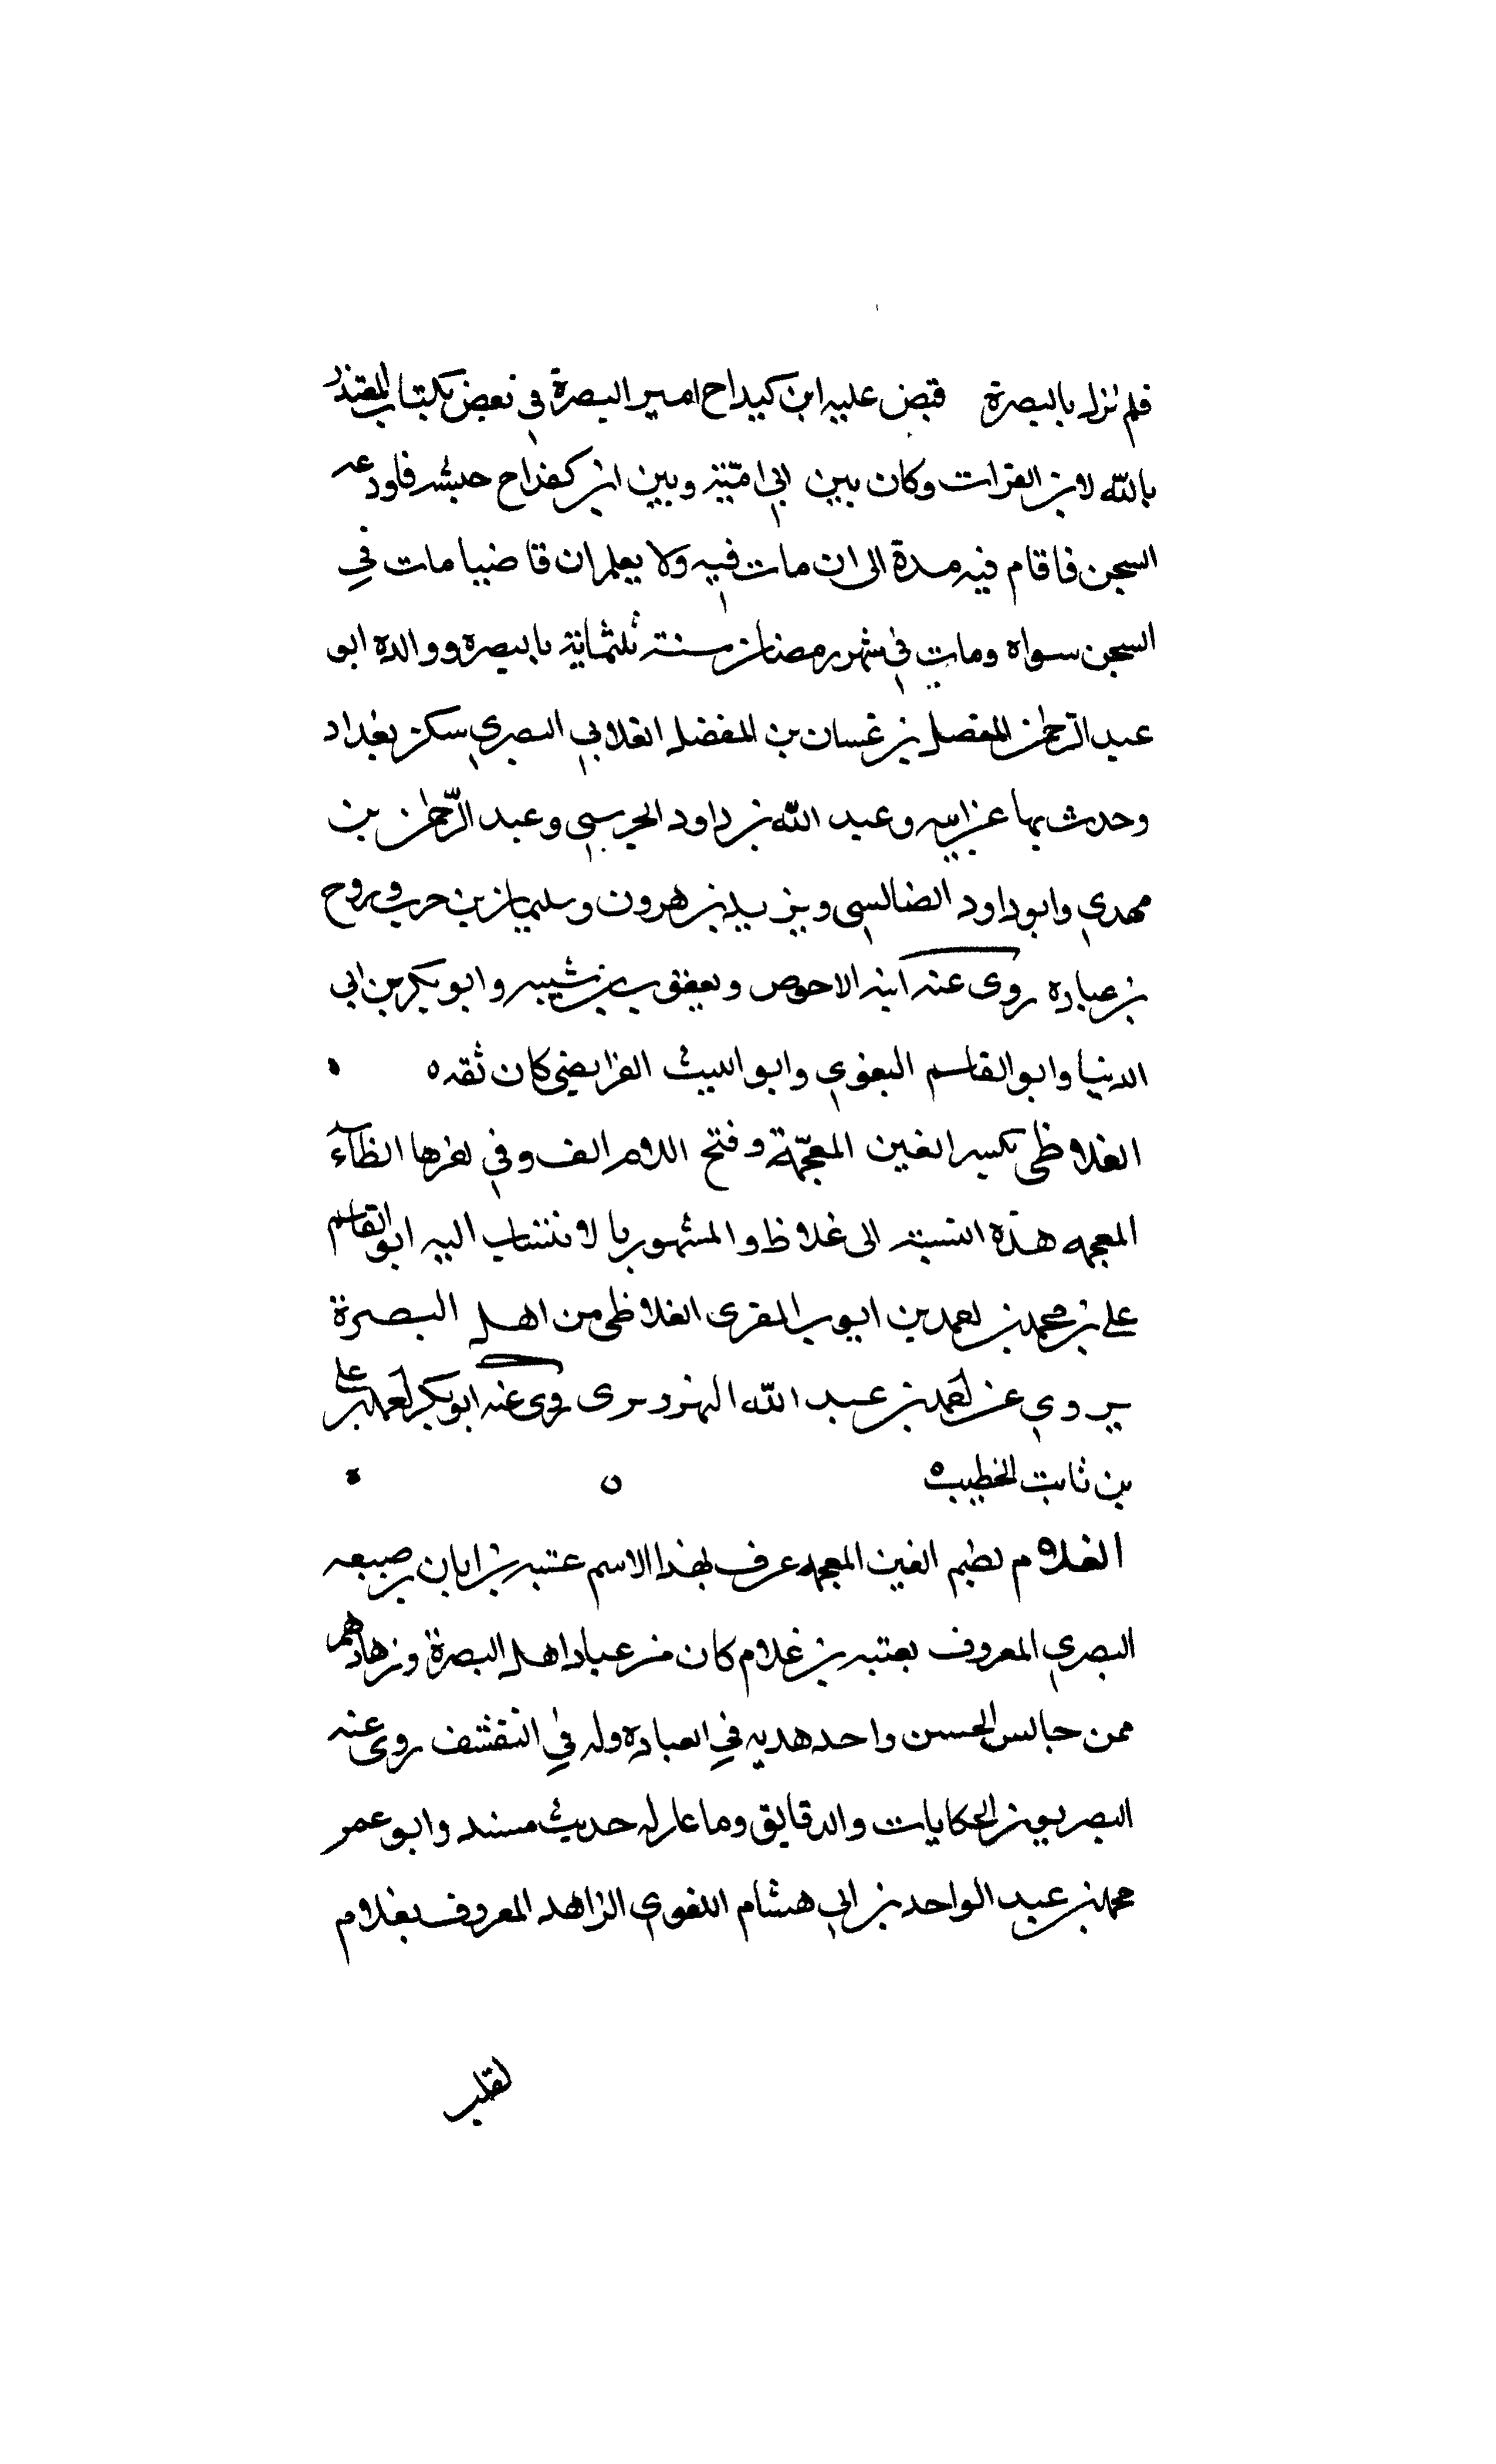 فلم نزل بالبصرة قبض عليه ابن كيداح امير البصرة في بعض نكبتاب المقتدر
بالله لابن الفرات وكان بين ابي امية وبين ابن كفداح حبشه فاودعه
السجن فاقام فيه مدة الى ان مات فيه ولا يعلم ان قاضيا مات في
السجن سواه ومات في شهر رمضان سنة ثلثمائة بالبصره ووالده ابو
عبد الرحمن المفضل بن غسان بن المفضل الغلابي البصري سكن بغداد
وحدث بها عن ابيه وعبد الله بن داود الخريبي وعبد الرحمن بن
مهدي وابو داود الضالسي ويزيد بن هرون وسليمان بن حرب وروح
بن عباده روى عنه ابنه الاحوص ويعقوب بن شيبه وابو بكر بن ابي
الدنيا وابو القاسم البغوي وابو الليث الفرايضي كان ثقه ه
الغلاظي بكسر الغين المعجمة وفتح اللام الف وفي اخرها الظاء
المعجمه هذه النسبة الى غلاظ والمشهور بالانتساب اليه ابو القاسم
علي بن محمد بن احمد بن ايوب المقرى الغلاظي من اهل البصرة
يروي عن احمد بن عبد الله النهرديرى روى عنه ابو بكر احمد بن علي
بن ثابت الخطيب ه
الغلام بضم الغين المعجمه عرف بهذا الاسم عتبه بن ابان بن صبيعه
البصري المعروف بعتبه بن غلام كان من عباد اهل البصرة وزهادهم
ممن جالس الحسن واخذ هديه في العباده وله في التقشف روى عنه
البصريون الحكايات والدقايق وما عار له حديث مسند وابو عمر
محمد بن عبد الواحد بن ابي هشام اللغوي الزاهد المعروف بغلام